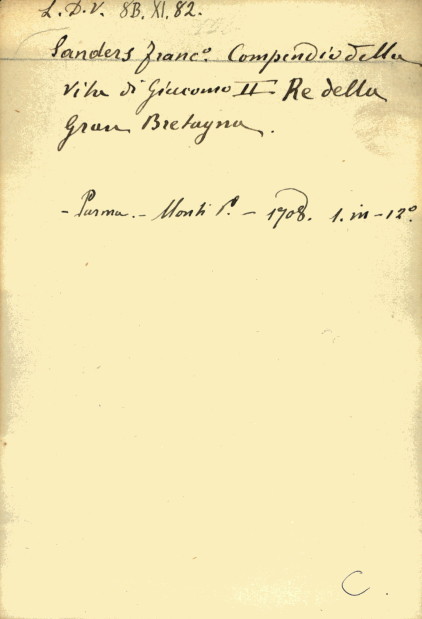 L. D. V. 8B. XI. 82.
Sanders franc.º Compendio della
vita di Giacomo II Re della
Gran Bretagna.
- Parma. - Monti P. - 1708. 1. in - 12º.
C.